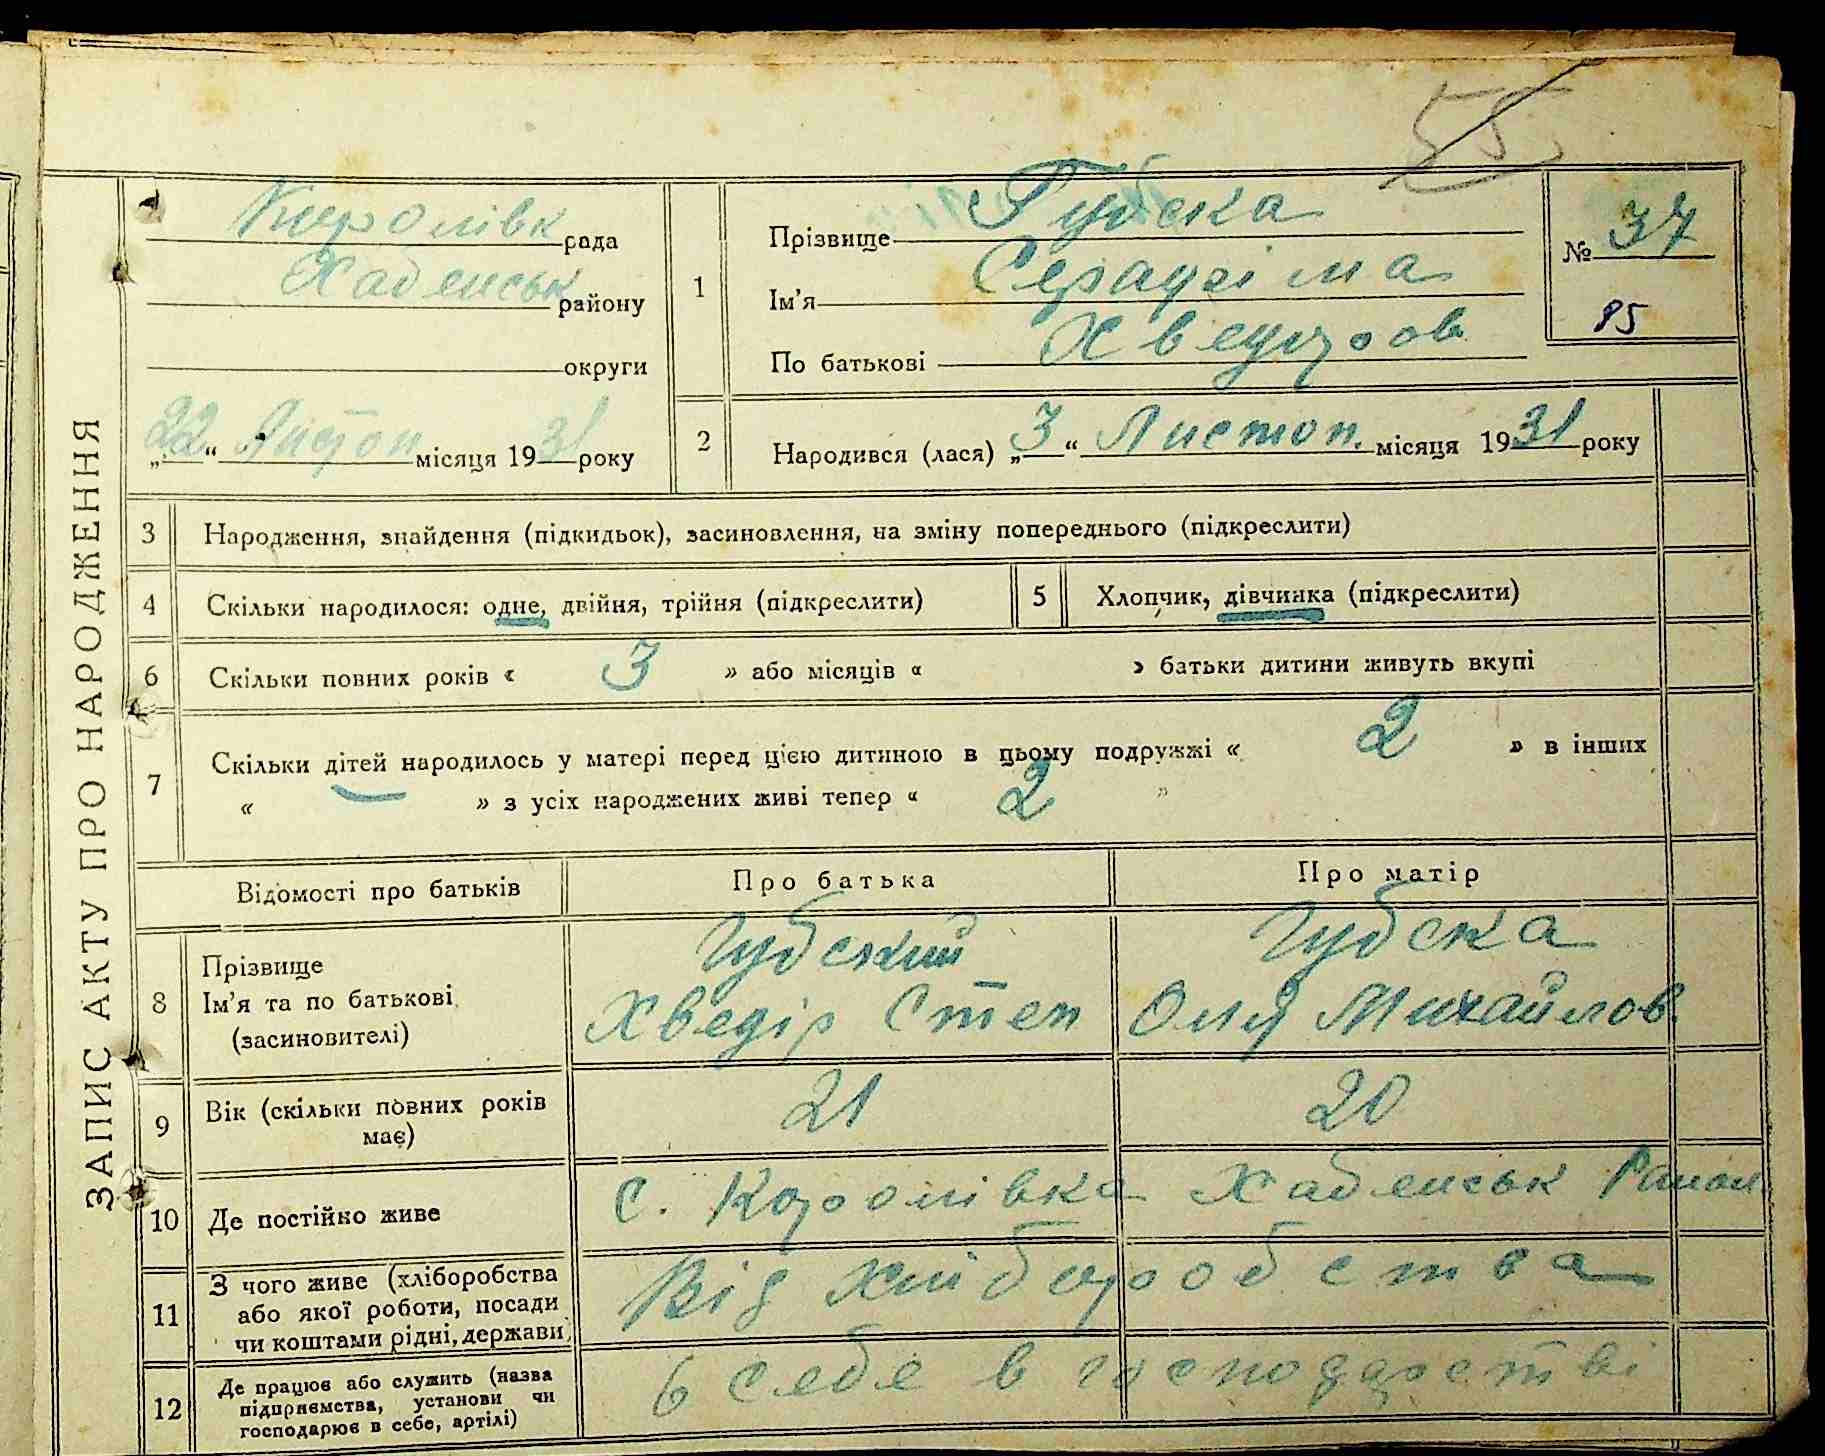 55
ЗАПИС АКТУ ПРО НАРОДЖЕННЯ
Королівк рада
Хабенськ району
округи
„22“ Листоп місяця 1931 року
1
Прізвище Губска
Ім'я Серафіма
По батькові Хведоров
№ 37
85
2 Народився (лася) „3“ Листоп. місяця 1931 року
3 Народження, знайдення (підкидьок), засиновлення, на зміну попереднього (підкреслити)
4 Скільки народилося: одне, двійня, трійня (підкреслити) 5 Хлопчик, дівчинка (підкреслити)
6 Скільки повних років « 3 » або місяців « » батьки дитини живуть вкупі
7 Скільки дітей народилось у матері перед цією дитиною в цьому подружжі « 2 » в інших
« — » з усіх народжених живі тепер « 2 »
Відомості про батьків Про батька Про матір
8
Прізвище Губский Губска
Ім'я та по батькові Хведір Степ Оля Михайлов.
(засиновителі)
9 Вік (скільки повних років має) 21 20
10 Де постійно живе с. Королівка Хабенськ Район
11 З чого живе (хліборобства
або якої роботи, посади
чи коштами рідні, держави) Від хліборобства
12 Де працює або служить (назва
підприємства, установи чи
господарює в себе, артілі) в себе в господарстві